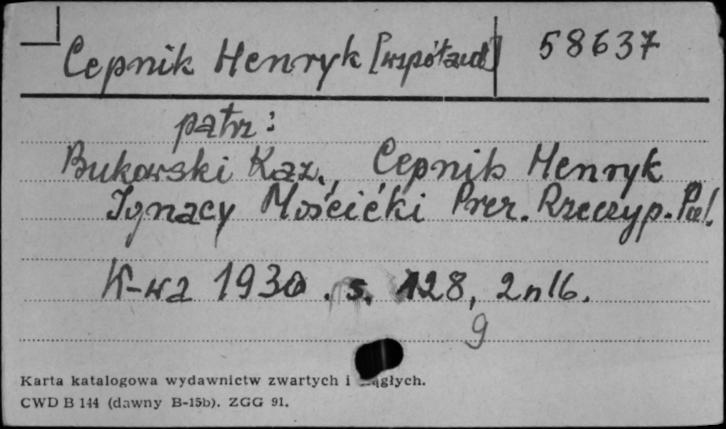 Cepnik Henryk [współaut] 58637
patrz:
Bukowski Kaz., Cepnik Henryk
Ignacy Mościcki Prez. Rzeczyp. Pol.
K-wa 1930. s. 128, 2 nlb.
9
Karta katalogowa wydawnictw zwartych i ciągłych.
CWD B 144 (dawny B-15b). ZGG 91.